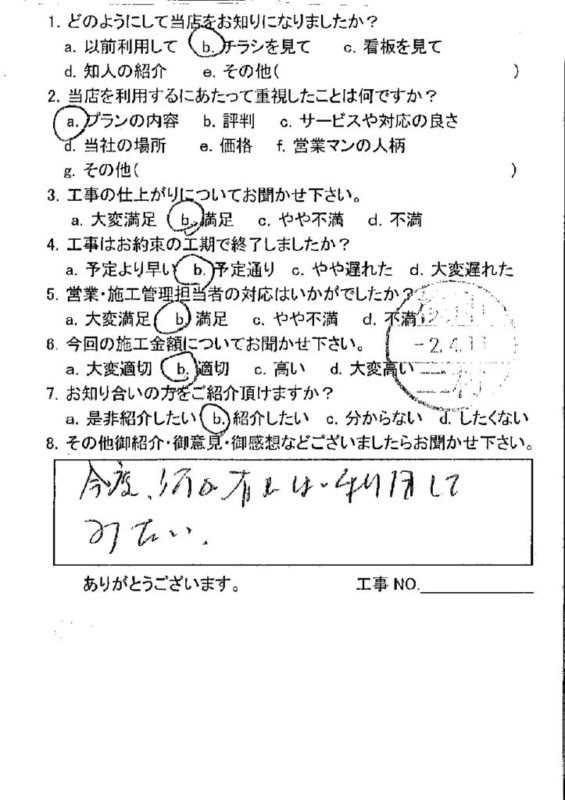 1. どのようにして当店をお知りになりましたか？
a. 以前利用して b. チラシを見て c. 看板を見て
d. 知人の紹介 e. その他( )
2. 当店を利用するにあたって重視したことは何ですか？
a. プランの内容 b. 評判 c. サービスや対応の良さ
d. 当社の場所 e. 価格 f. 営業マンの人柄
g. その他( )
3. 工事の仕上がりについてお聞かせ下さい。
a. 大変満足 b. 満足 c. やや不満 d. 不満
4. 工事はお約束の工期で終了しましたか？
a. 予定より早い b. 予定通り c. やや遅れた d. 大変遅れた
5. 営業・施工管理担当者の対応はいかがでしたか？
a. 大変満足 b 満足 c. やや不満 d. 不満
6. 今回の施工金額についてお聞かせ下さい。
a. 大変適切 b. 適切 c. 高い d. 大変高い
-2.4.11
7. お知り合いの方をご紹介頂けますか？
a. 是非紹介したい b. 紹介したい c. 分からない d. したくない
8. その他御紹介・御意見・御感想などございましたらお聞かせ下さい。
今度、利用して
みたい.
ありがとうございます。 工事 NO.